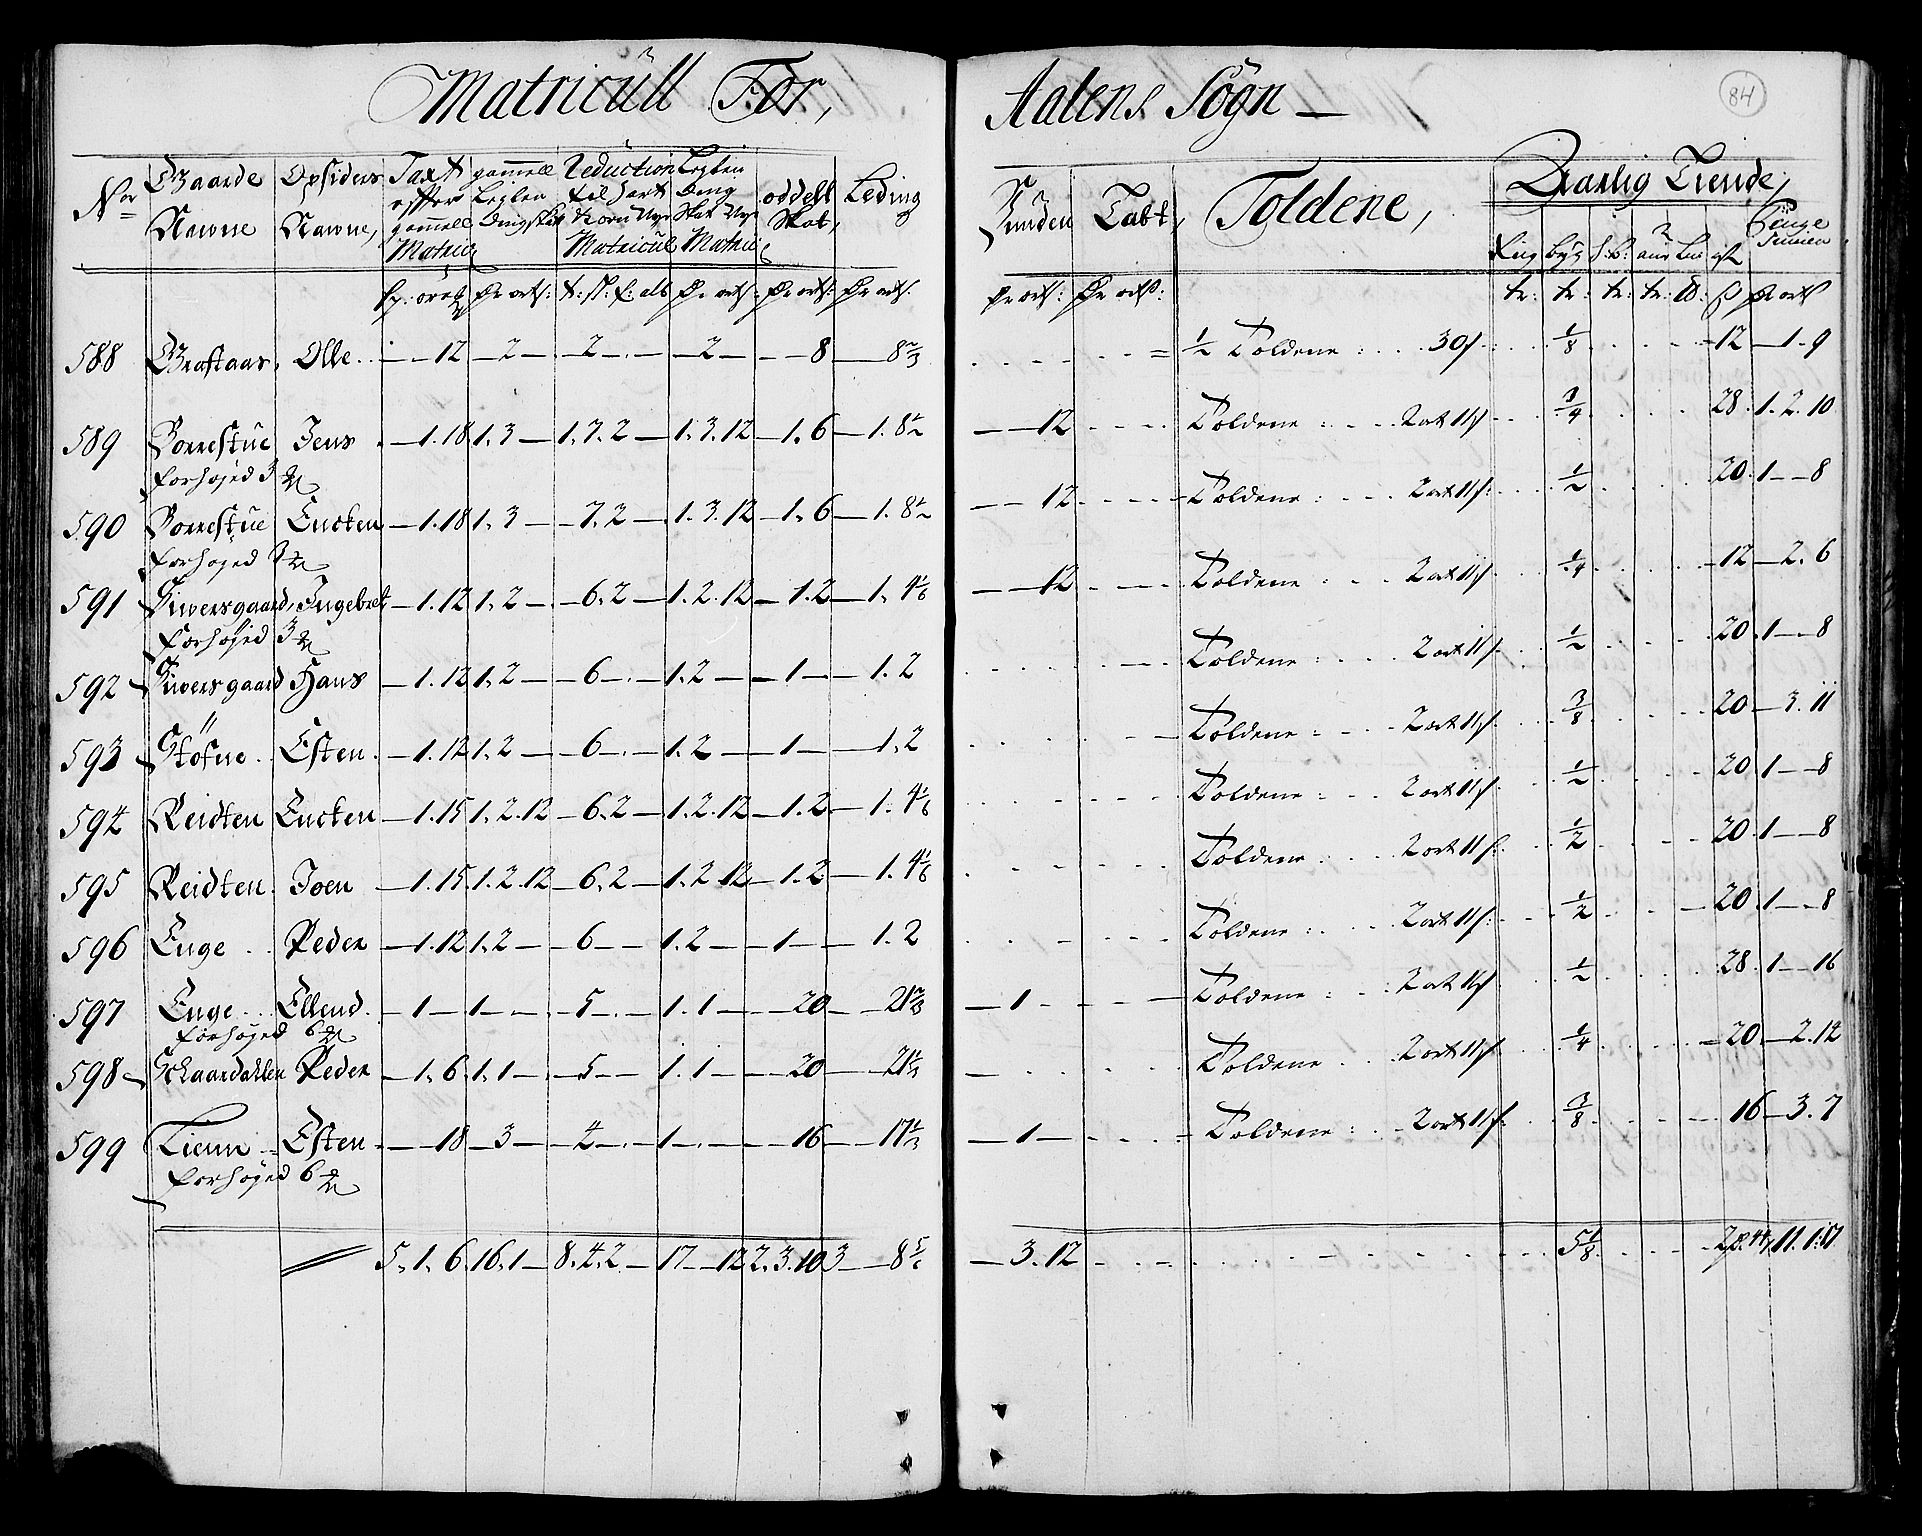 Matricull For, Aalens Sogn —
84
Nor Gaarde Nawne Opsiders Nawne, Taxt effter gammell Matric gammell Leylen Dingskat Reduction til hart Korn Nye Matricul Leylen Ding Skat Nye Matric oddell Skat, Leding
Tabt, Toldene, Qvanlig Tiende,
588 Olle . . — — 12 — 2 — — 2 — . — — 2 — — — 8 — 8 2/3 . . . . . . = 1/2 Toldene : . . . 30 s . . 1/8 . . . . . 12 — 1 . 9
589 Borrestue Jens . — 1. 18 1. 3 — 1. 7. 2 — 1. 3. 12 — 1. 6 — 1. 8 1/2 — — 12 . . . . Toldene : . . . 2 ort 11 s . . . 3/4 . . . . . 28 . 1. 2. 10
forhøyed 3
590 Borrestue Encken — 1. 18 1. 3 — — 7. 2 — 1. 3. 12 — 1. 6 — 1. 8 1/2 — — 12 . . . . — Toldene : . . . 2 ort 11 s : . . . 1/2 . . . . . 20 . 1 — — 8
forhøyed 3
591 Siwersgaard, Ingebret — 1. 12 1. 2 — . — 6. 2 — 1. 2. 12 — 1. 2 — 1. 4 1/6 — — 12 . . . — Toldene : . . . 2 ort 11 s . . . 1/4 . . . . . 12 — 2. 6
forhøyed 3
592 Siwersgaard Hans — 1. 12 1. 2 — — 6 — . — 1. 2 — — 1 — — 1. 2 . . . . . — Toldene : . . . . 2 ort 11 s . . . 1/2 . . . . . 20 . 1 — . — 8
593 Støfue . . Esten . — 1. 12 1. 2 — — 6 — . — 1. 2 — — 1 — — 1. 2 . . . . . — Toldene : . . . 2 ort 11 s . . . 3/8 . . . . . 20 — 3. 11
594 Reidten Encken — 1. 15 1. 2. 12 — 6. 2 — 1. 2. 12 — 1. 2 — 1. 4 1/6 . . . . . . . Toldene : . . . 2 ort 11 s . . . 1/2 . . . . . 20 1 — — 8
595 Reidten . Joen — 1. 15 1. 2. 12 — 6. 2 — 1. 2. 12 — 1. 2 — 1. 4 1/6 . . . . . . . Toldene : . . . . 2 ort 11 s . . . 1/2 . . . . . 20 . 1 — — 8
596 Enge . . Peder — 1. 12 1. 2 — — 6 — — 1. 2 — — 1 — — 1. 2 . . . . . . . Toldene : . . . . 2 ort 11 s : . . . 1/2 . . . . — 20 . 1 — — 8
597 Enge . . . Ellend . — 1 — 1 — . . — 5 — . — 1. 1 — — — 20 — — 21 2/3 — 1 . . . . — Toldene : . . . 2 ort 11 s . . . 1/2 . . . . . 28 . 1 — 16
forhøyed 6
598 Peder — 1. 6 . 1. 1 — — 5 — . — 1. 1 — — — 20 — — 21 2/3 — . . . . . . Toldene . . . 2 ort 11 s . . . 1/4 . . . . . — 20 — 2. 14
599 Esten . — — 18 — 3 — — 4 — . — 1 — . — — — 16 — — 17 1/3 — 1 — . . . . — Toldene : . . . 2 ort 11 s . . . 3/8 . . . . . — 16 — 3. 7
forhøyed 6
5. 1. 6. 16. 1 — 8. 4. 2 — 17 — 12 2. 3. 10 3 — 8 5/6 — 3. 12 . . . . . 5 1/8 . . . . 11. 1. 17